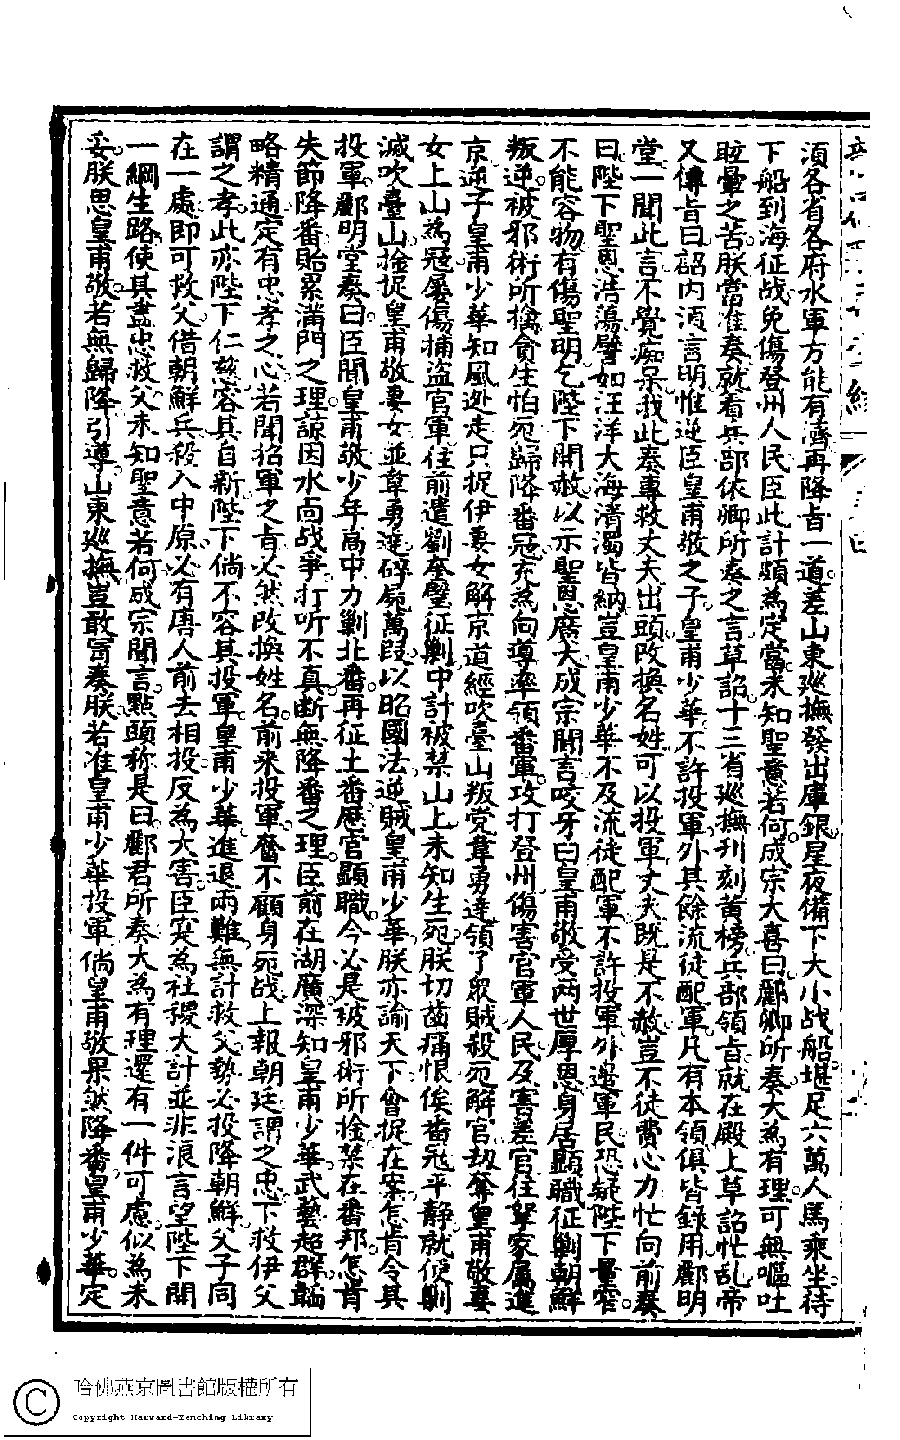 須各省各府水軍方能有濟再降旨一道差山東廵撫發出庫銀星夜備下大小战船堪足六萬人馬乘坐待
下船到海征战免傷登州人民臣此計頗為定當未知聖意若何成宗大喜曰酈卿所奏大為有理可無嘔吐
眩暈之苦朕當准奏就着兵部依卿所奏之言草詔十三省廵撫刋刻黃榜兵部領旨就在殿上草詔忙乱帝
又傳旨曰詔內須言明惟逆臣皇甫敬之子皇甫少華不許投軍外其餘流徒配軍凡有本領俱皆錄用酈明
堂一聞此言不覺痴呆我此奏專救丈夫出頭改換名姓可以投軍丈夫既是不赦豈不徒費心力忙向前奏
曰陛下聖恩浩蕩譬如汪洋大海清濁皆納豈皇甫少華不及流徒配軍不許投軍外邊軍民恐疑陛下量窄
不能容物有傷聖明乞陛下開赦以示聖恩廣大成宗聞言咬牙曰皇甫敬受两世厚恩身居顯職征剿朝鮮
叛逆被邪術所擒貪生怕死歸降番冦充為向導率領番軍攻打登州傷害官軍人民及害差官往拏家属進
京逆子皇甫少華知風逊走只捉伊妻女解京道經吹臺山叛党韋勇達領了衆賊殺死解官刧奪皇甫敬妻
女上山為冦屡傷捕盗官軍往前遣劉奎璧征剿中計被禁山上未知生死朕切齒痛恨俟番冦平靜就便剿
滅吹臺山捡捉皇甫敬妻女並韋勇達碎屍萬叚以昭國法逆賊皇甫少華朕亦諭天下會捉在案怎肯令其
投軍酈明堂奏曰臣聞皇甫敬少年高中力剿北番再征土番歷官顯職今必是被邪術所捡禁在番邦怎肯
失節降番貽累滿門之理諒因水面战爭打听不真断無降番之理臣前在湖廣深知皇甫少華武藝超群韜
略精通定有忠孝之心若聞招軍之旨必然改換姓名前来投軍奮不顧身死战上報朝廷謂之忠下救伊父
謂之孝此亦陛下仁慈容其自新陛下倘不容其投軍皇甫少華進退两難無計救父勢必投降朝鮮父子同
在一處即可救父借朝鮮兵殺入中原必有唐人前去相投反為大害臣寔為社稷大計並非浪言望陛下開
一綱生路使其盡忠救父未知聖意若何成宗聞言點頭称是曰酈君所奏大為有理還有一件可慮似為未
妥朕思皇甫敬若無歸降引導山東廵撫豈敢冐奏朕若准皇甫少華投軍倘皇甫敬果然降番皇甫少華定
哈佛燕京圖書館版權所有
Copyright Harvard-Yenching Library